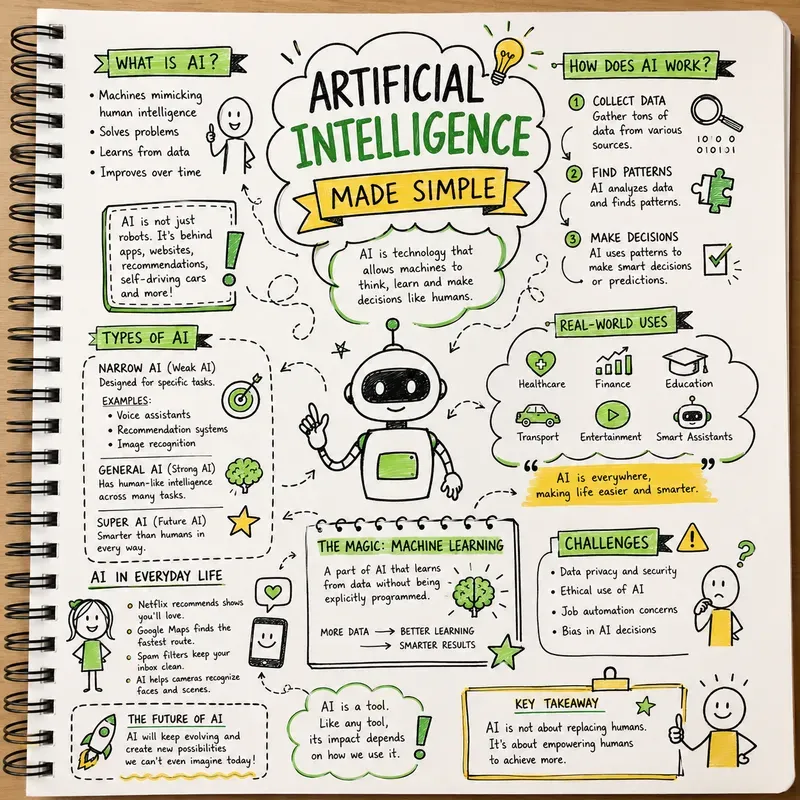 ARTIFICIAL
INTELLIGENCE
MADE SIMPLE
AI is technology that
allows machines to
think, learn and make
decisions like humans.
WHAT IS AI?
• Machines mimicking
human intelligence
• Solves problems
• Learns from data
• Improves over time
AI is not just
robots. It's behind
apps, websites,
recommendations,
self-driving cars
and more!
!
HOW DOES AI WORK?
1 COLLECT DATA
Gather tons of
data from various
sources.
10100
010101
2 FIND PATTERNS
AI analyzes data
and finds patterns.
3 MAKE DECISIONS
AI uses patterns to
make smart decisions
or predictions.
TYPES OF AI
NARROW AI (Weak AI)
Designed for specific tasks.
EXAMPLES:
• Voice assistants
• Recommendation systems
• Image recognition
GENERAL AI (Strong AI)
Has human-like intelligence
across many tasks.
SUPER AI (Future AI)
Smarter than humans in
every way.
REAL-WORLD USES
Healthcare
Finance
Education
Transport
Entertainment
Smart Assistants
"AI is everywhere,
making life easier and smarter."
THE MAGIC: MACHINE LEARNING
A part of AI that learns
from data without being
explicitly programmed.
MORE DATA → BETTER LEARNING
→ SMARTER RESULTS
CHALLENGES
!
?
• Data privacy and security
• Ethical use of AI
• Job automation concerns
• Bias in AI decisions
AI IN EVERYDAY LIFE
Netflix recommends shows
you'll love.
Google Maps finds the
fastest route.
Spam filters keep your
inbox clean.
AI helps cameras recognize
faces and scenes.
THE FUTURE OF AI
AI will keep evolving and
create new possibilities
we can't even imagine today!
AI is a tool.
Like any tool,
its impact depends
on how we use it.
!
KEY TAKEAWAY
AI is not about replacing humans.
It's about empowering humans
to achieve more.